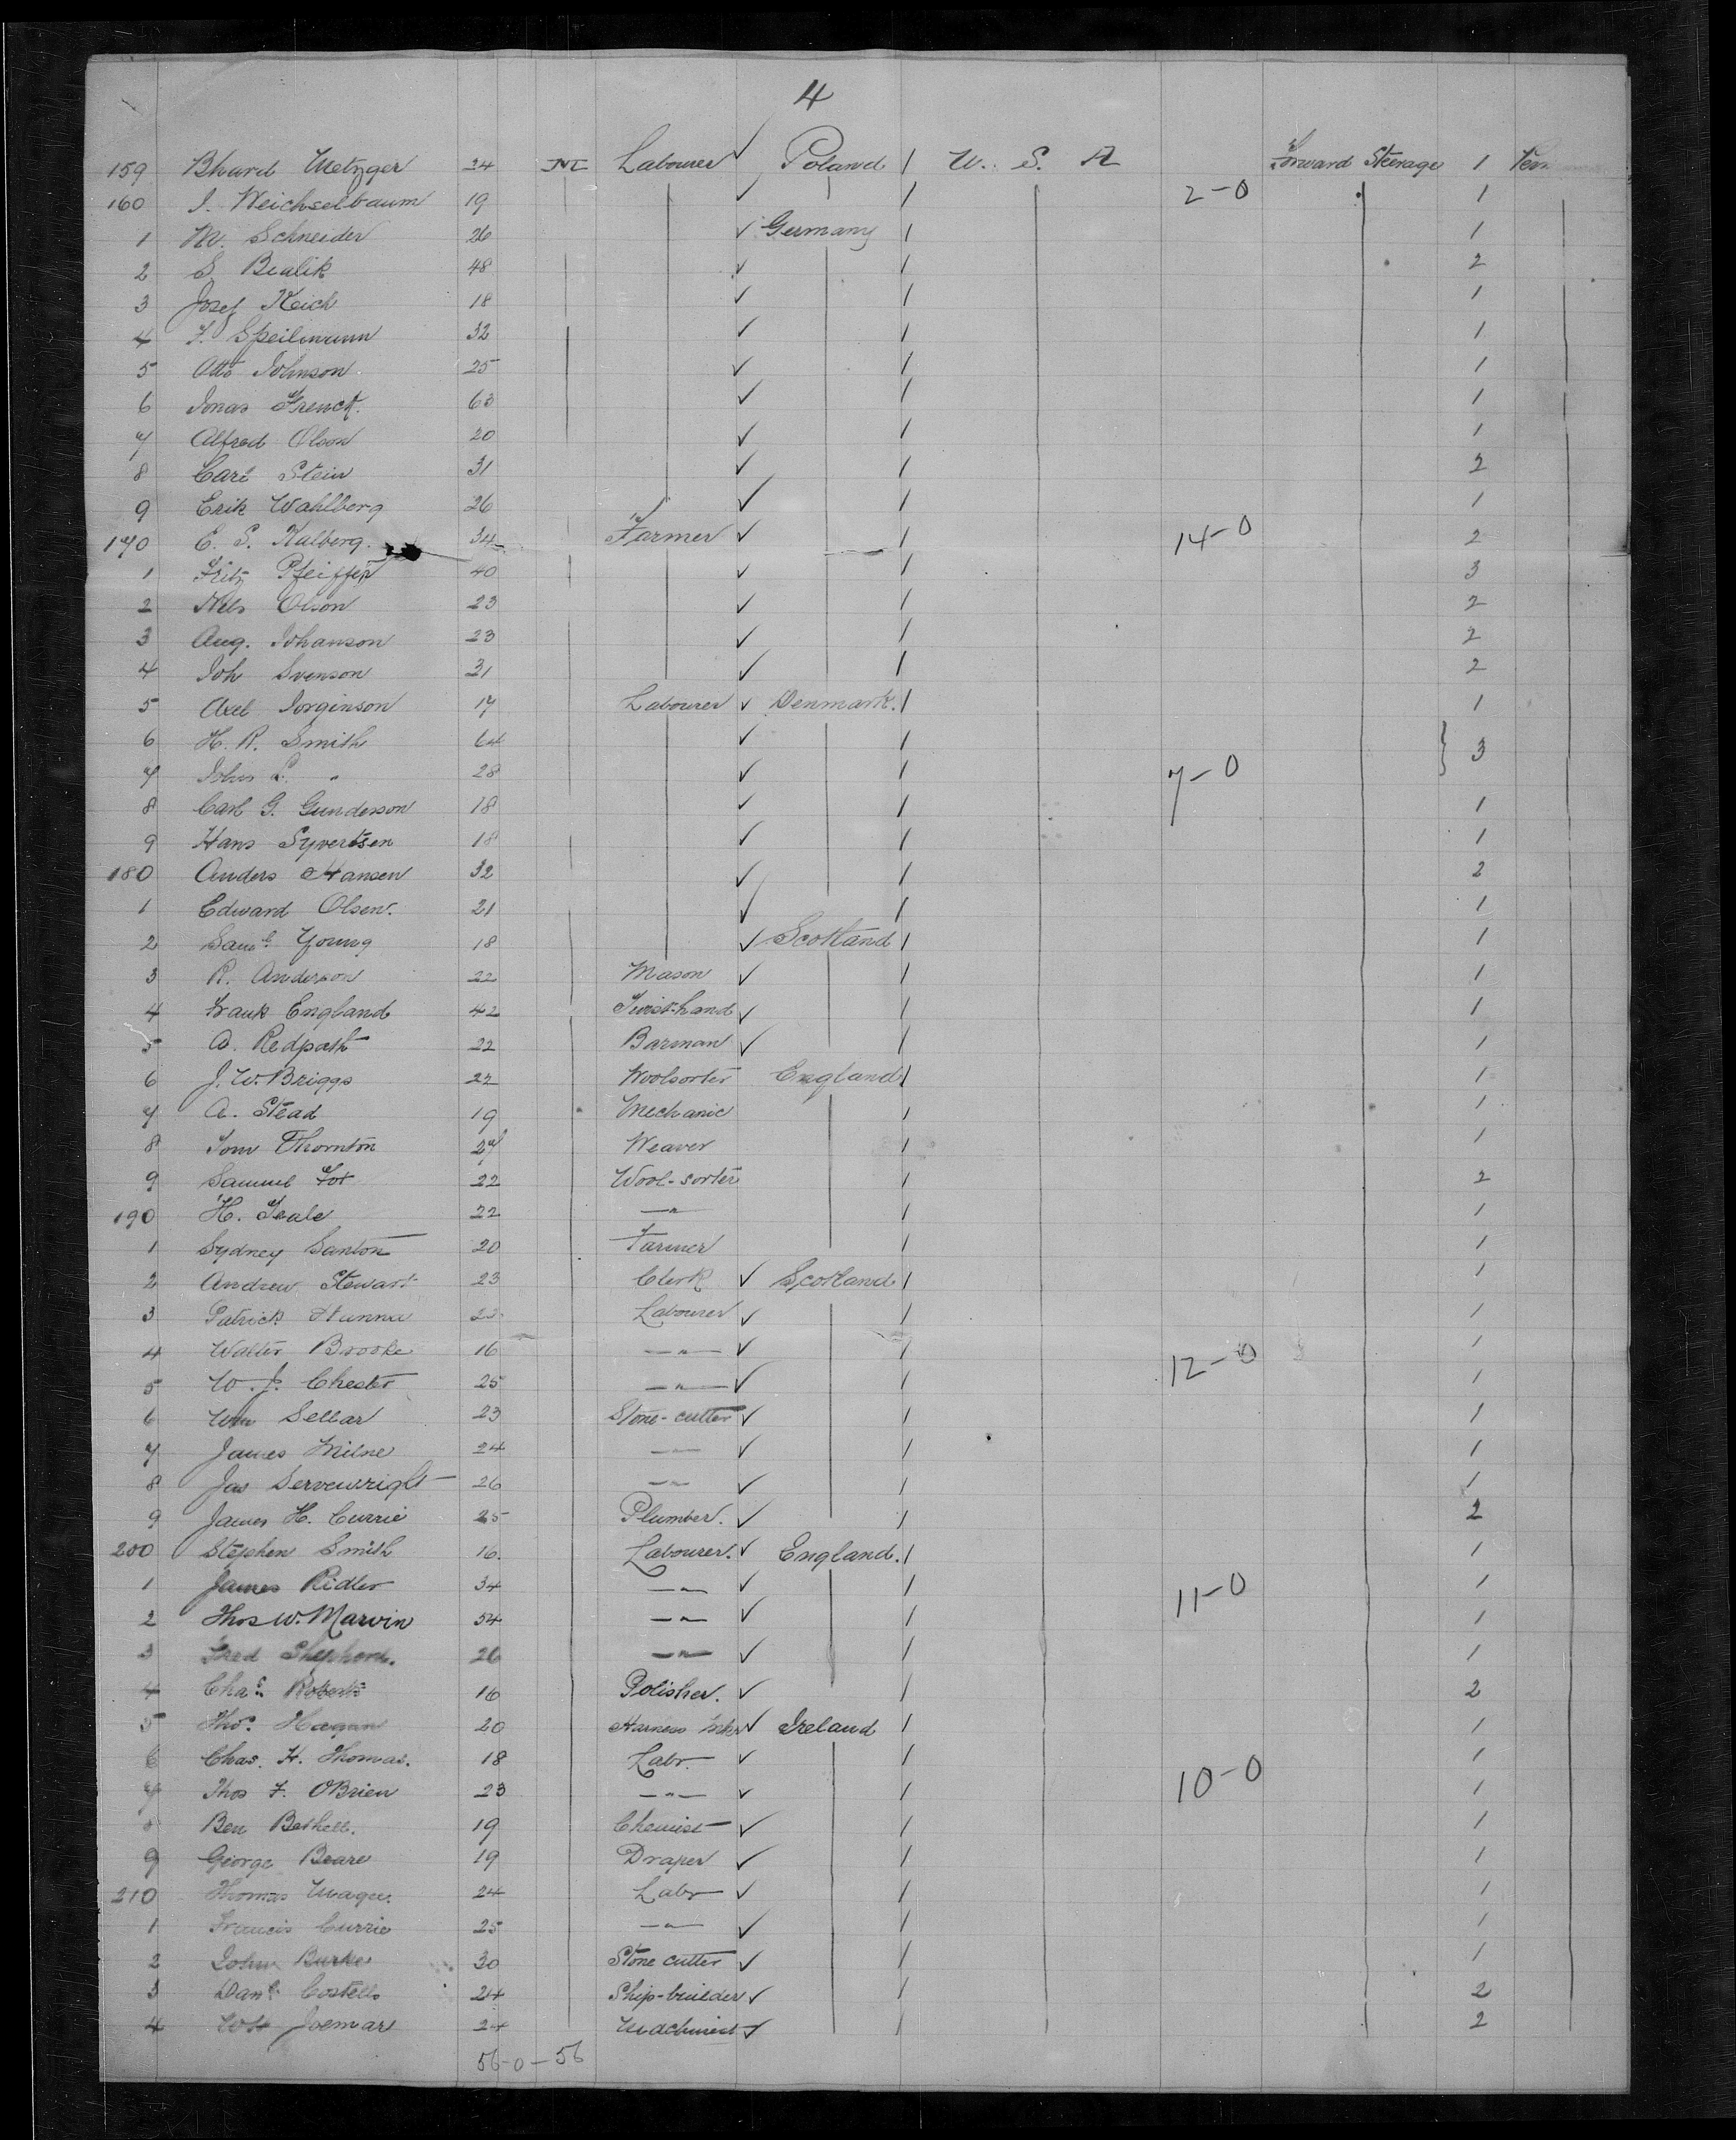 4
159 Bhard Metzger 24 M Labourer ✓ Poland / U. S. A Forward Steerage 1
160 I. Weichselbaum 19 ✓ / 2-0 1
1 M. Schneider 26 ✓ Germany / 1
2 S. Bialik 48 ✓ / 2
3 Josef Reich 18 ✓ / 1
4 F. Speilmann 32 ✓ / 1
5 Otto Johnson 25 ✓ / 1
6 Jonas Frenck. 63 ✓ / 1
7 Alfred Olson 20 ✓ / 1
8 Carl Stein 31 ✓ / 2
9 Erik Wahlberg 26 ✓ / 1
170 E. S. Kalberg. 34 Farmer ✓ / 14-0 2
1 Fritz Pfeiffer 40 ✓ / 3
2 Nels Olson 23 ✓ / 2
3 Aug. Johanson 23 ✓ / 2
4 Joh Svenson 31 ✓ / 2
5 Axel Jorginson 17 Labourer ✓ Denmark. / 1
6 H. R. Smith 64 ✓ / } 3
7 John L. " 28 ✓ / 7-0
8 Carl G. Gunderson 18 ✓ / 1
9 Hans Syvertsen 18 ✓ / 1
180 Anders Hansen 32 ✓ / 2
1 Edward Olsen. 21 ✓ / 1
2 Saml Young 18 ✓ Scotland / 1
3 R. Anderson 22 Mason ✓ / 1
4 Frank England 42 Twist-hand ✓ / 1
5 A. Redpath 22 Barman ✓ / 1
6 J. W. Briggs 22 Woolsorter England / 1
7 A. Stead 19 Mechanic / 1
8 Tom Thornton 27 Weaver / 1
9 Samuel Fox 22 Wool-sorter / 2
190 H. Teale 22 —"— / 1
1 Sydney Santon 20 Farmer / 1
2 Andrew Stewart 23 Clerk ✓ Scotland / 1
3 Patrick Hanna 22 Labourer ✓ / 1
4 Walter Brooke 16 —"— ✓ / 12-0 1
5 W. J. Chester 25 —"— ✓ / 1
6 Wm Sellar 23 Stone-cutter ✓ / 1
7 James Milne 24 —"— ✓ / 1
8 Jas 26 —"— ✓ / 1
9 James H. Currie 25 Plumber. ✓ / 2
200 Stephen Smith 16. Labourer. ✓ England. / 1
1 James Ridler 34 —"— ✓ / 11-0 1
2 Thos W. Marvin 54 —"— ✓ / 1
3 Fred Shepherd. 26 —"— ✓ / 1
4 Chas Roberts 16 Polisher. ✓ / 2
5 Thos. Hagan 20 Harness Mkr ✓ Ireland / 1
6 Chas. H. Thomas. 18 Labr. ✓ / 1
7 Thos F. OBrien 23 —"— ✓ / 10-0 1
8 Ben Bethell. 19 Chemist ✓ / 1
9 George Beare 19 Draper ✓ / 1
210 Thomas 24 Labr ✓ / 1
1 Francis Currie 25 —"— ✓ / 1
2 John Burke 30 Stone cutter ✓ / 1
3 Danl Costello 24 Ship-builder ✓ / 2
4 24 Machinist ✓ / 2
56-0-56